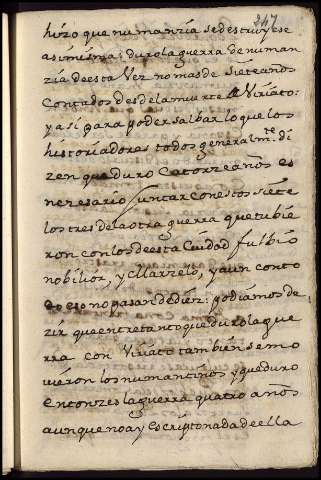 247
hizo que numanzia se destruyese
asimisma: duro la guerra de numan
zia de esta Vez no mas de siete años
Contados desde la muerte de Viriato:
y asi para poder salbar lo que los
historiadores todos general.mte di
zen que duro Catorze años es
nezesario juntar con estos siete
los tres de la otra guerra que tubie
ron con los de esta Ciudad fulbio
nobilior, y Marzelo, y aun con to
do eso no pasan de diez: podiamos de
zir que entretanto que duro la gue
rra con Viriato tambien se mo
vieron los numantinos y que duro
entonzes la guerra quatro años
aunque no ay escripto nada de ella